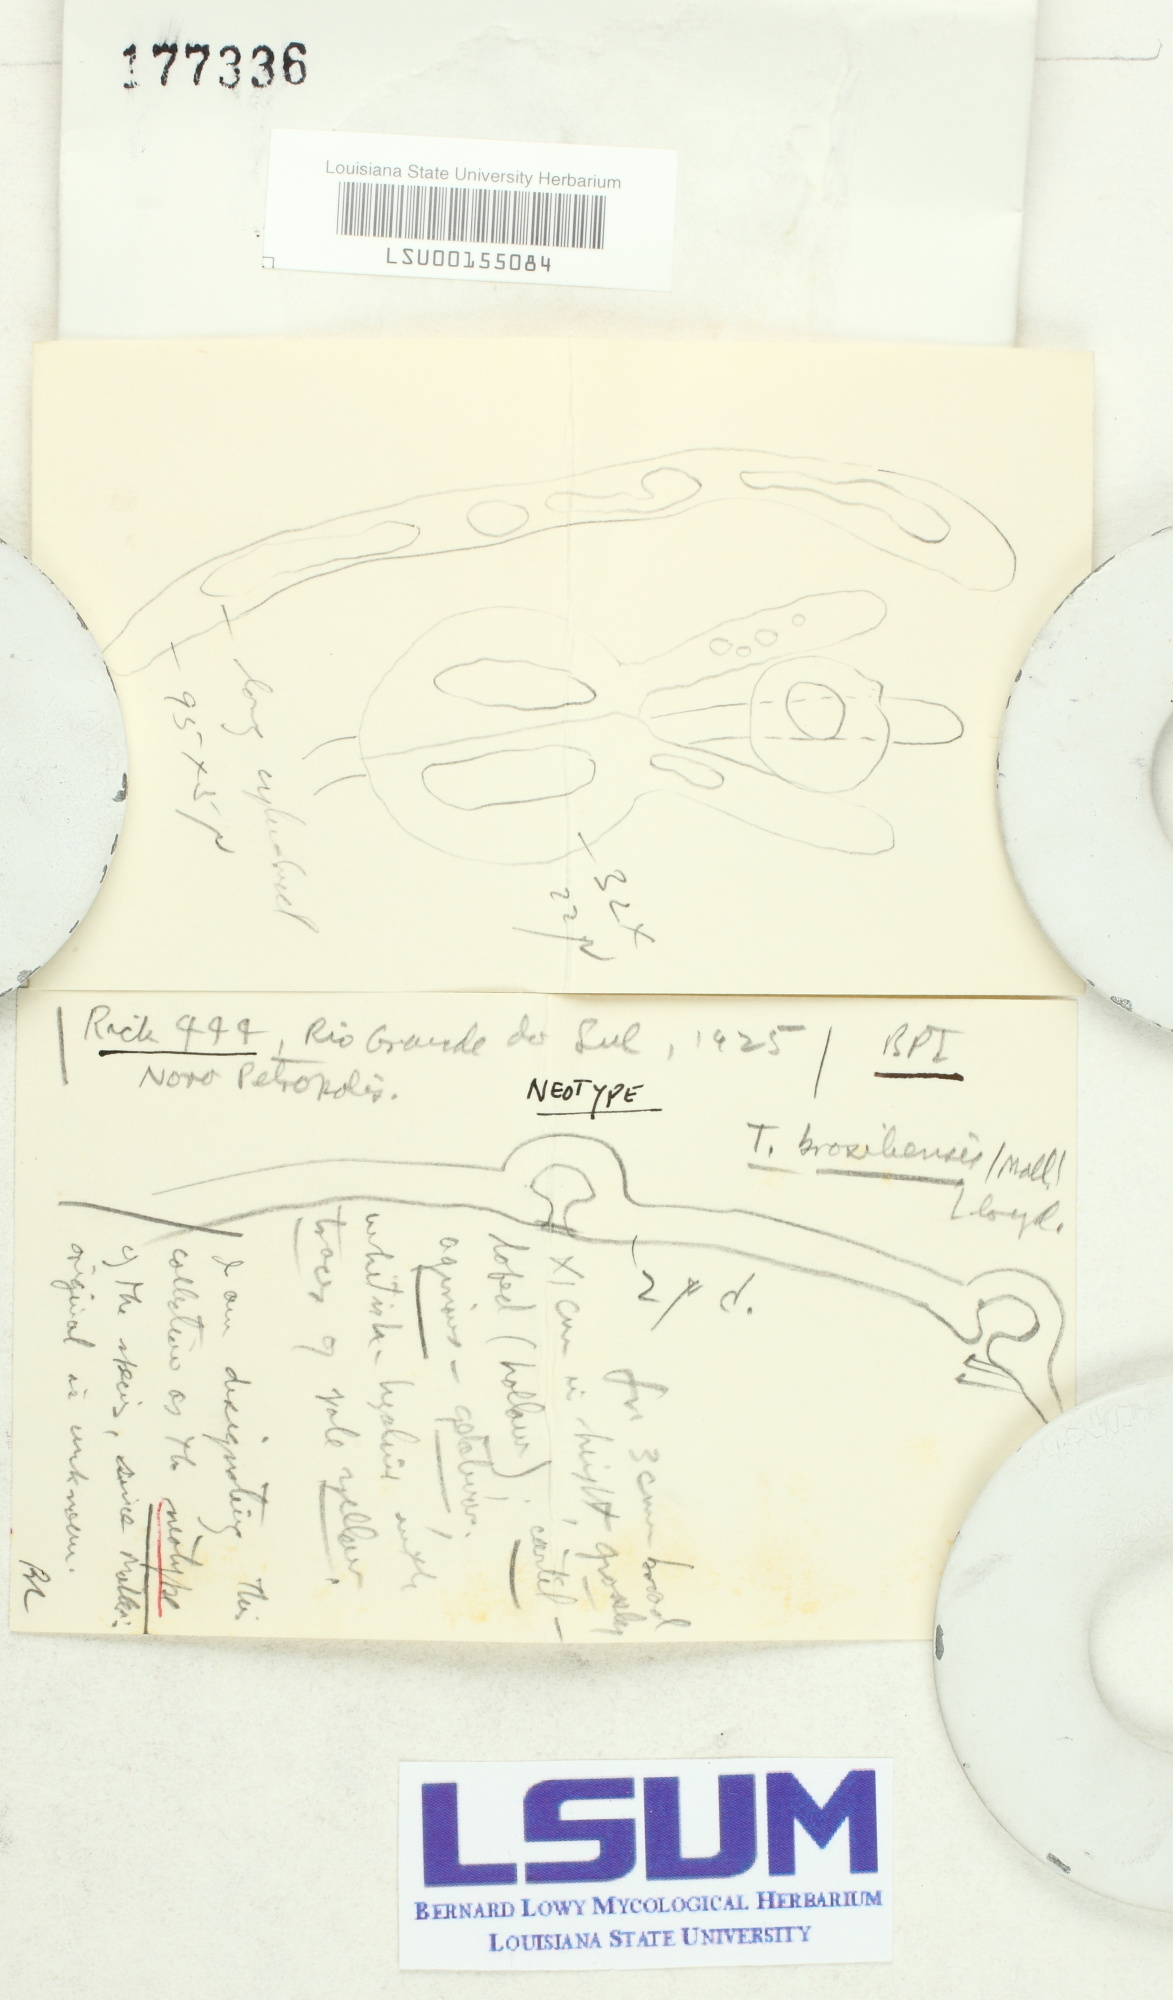 177336
Louisiana State University Herbarium
LSU00155084
long cylindrical
95 × 5 μ
32 ×
22 μ
Rick 444, Rio Grande do Sul, 1925 / BPI
Novo Petropolis.
NEOTYPE
T. brasiliensis (Möll)
Lloyd.
2 μ d.
fr. 3 cm broad
× 1 cm in height, grossly
lobed (hollow); cartil-
aginous - gelatinous.
whitish - hyaline with
traces of pale yellow.
I am designating this
collection as the neotype
of the species, since Möller's
original is unknown.
BL
LSUM
BERNARD LOWY MYCOLOGICAL HERBARIUM
LOUISIANA STATE UNIVERSITY